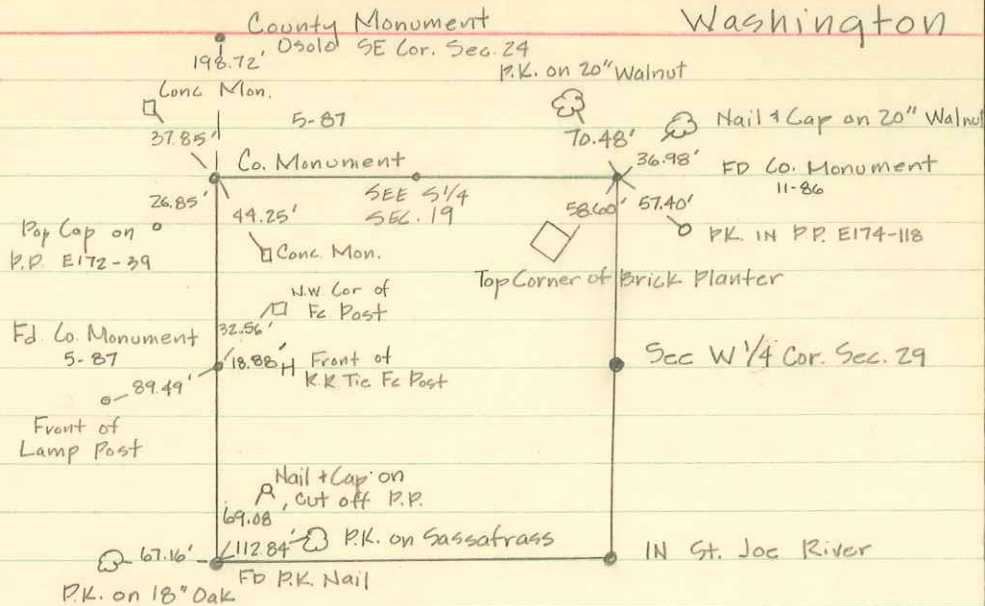 Washington
County Monument
Osolo SE Cor. Sec. 24
198.72'
P.K. on 20" Walnut
Conc Mon.
5-87
70.48'
Nail & Cap on 20" Walnut
37.85'
36.98'
Co. Monument
FD Co. Monument
11-86
26.85'
SEE S1/4
SEC. 19
44.25'
58.60'
57.40'
Pop Cap on
P.P. E172-39
Conc Mon.
P.K. IN P.P. E174-118
Top Corner of Brick Planter
N.W. Cor of
Fc Post
32.56'
Fd. Co. Monument
5-87
18.88'
Front of
R.R Tie Fc Post
See W 1/4 Cor. Sec. 29
89.49'
Front of
Lamp Post
Nail + Cap on
Cut off P.P.
69.08'
67.16'
112.84'
P.K. on Sassafrass
IN St. Joe River
FD P.K. Nail
P.K. on 18" Oak